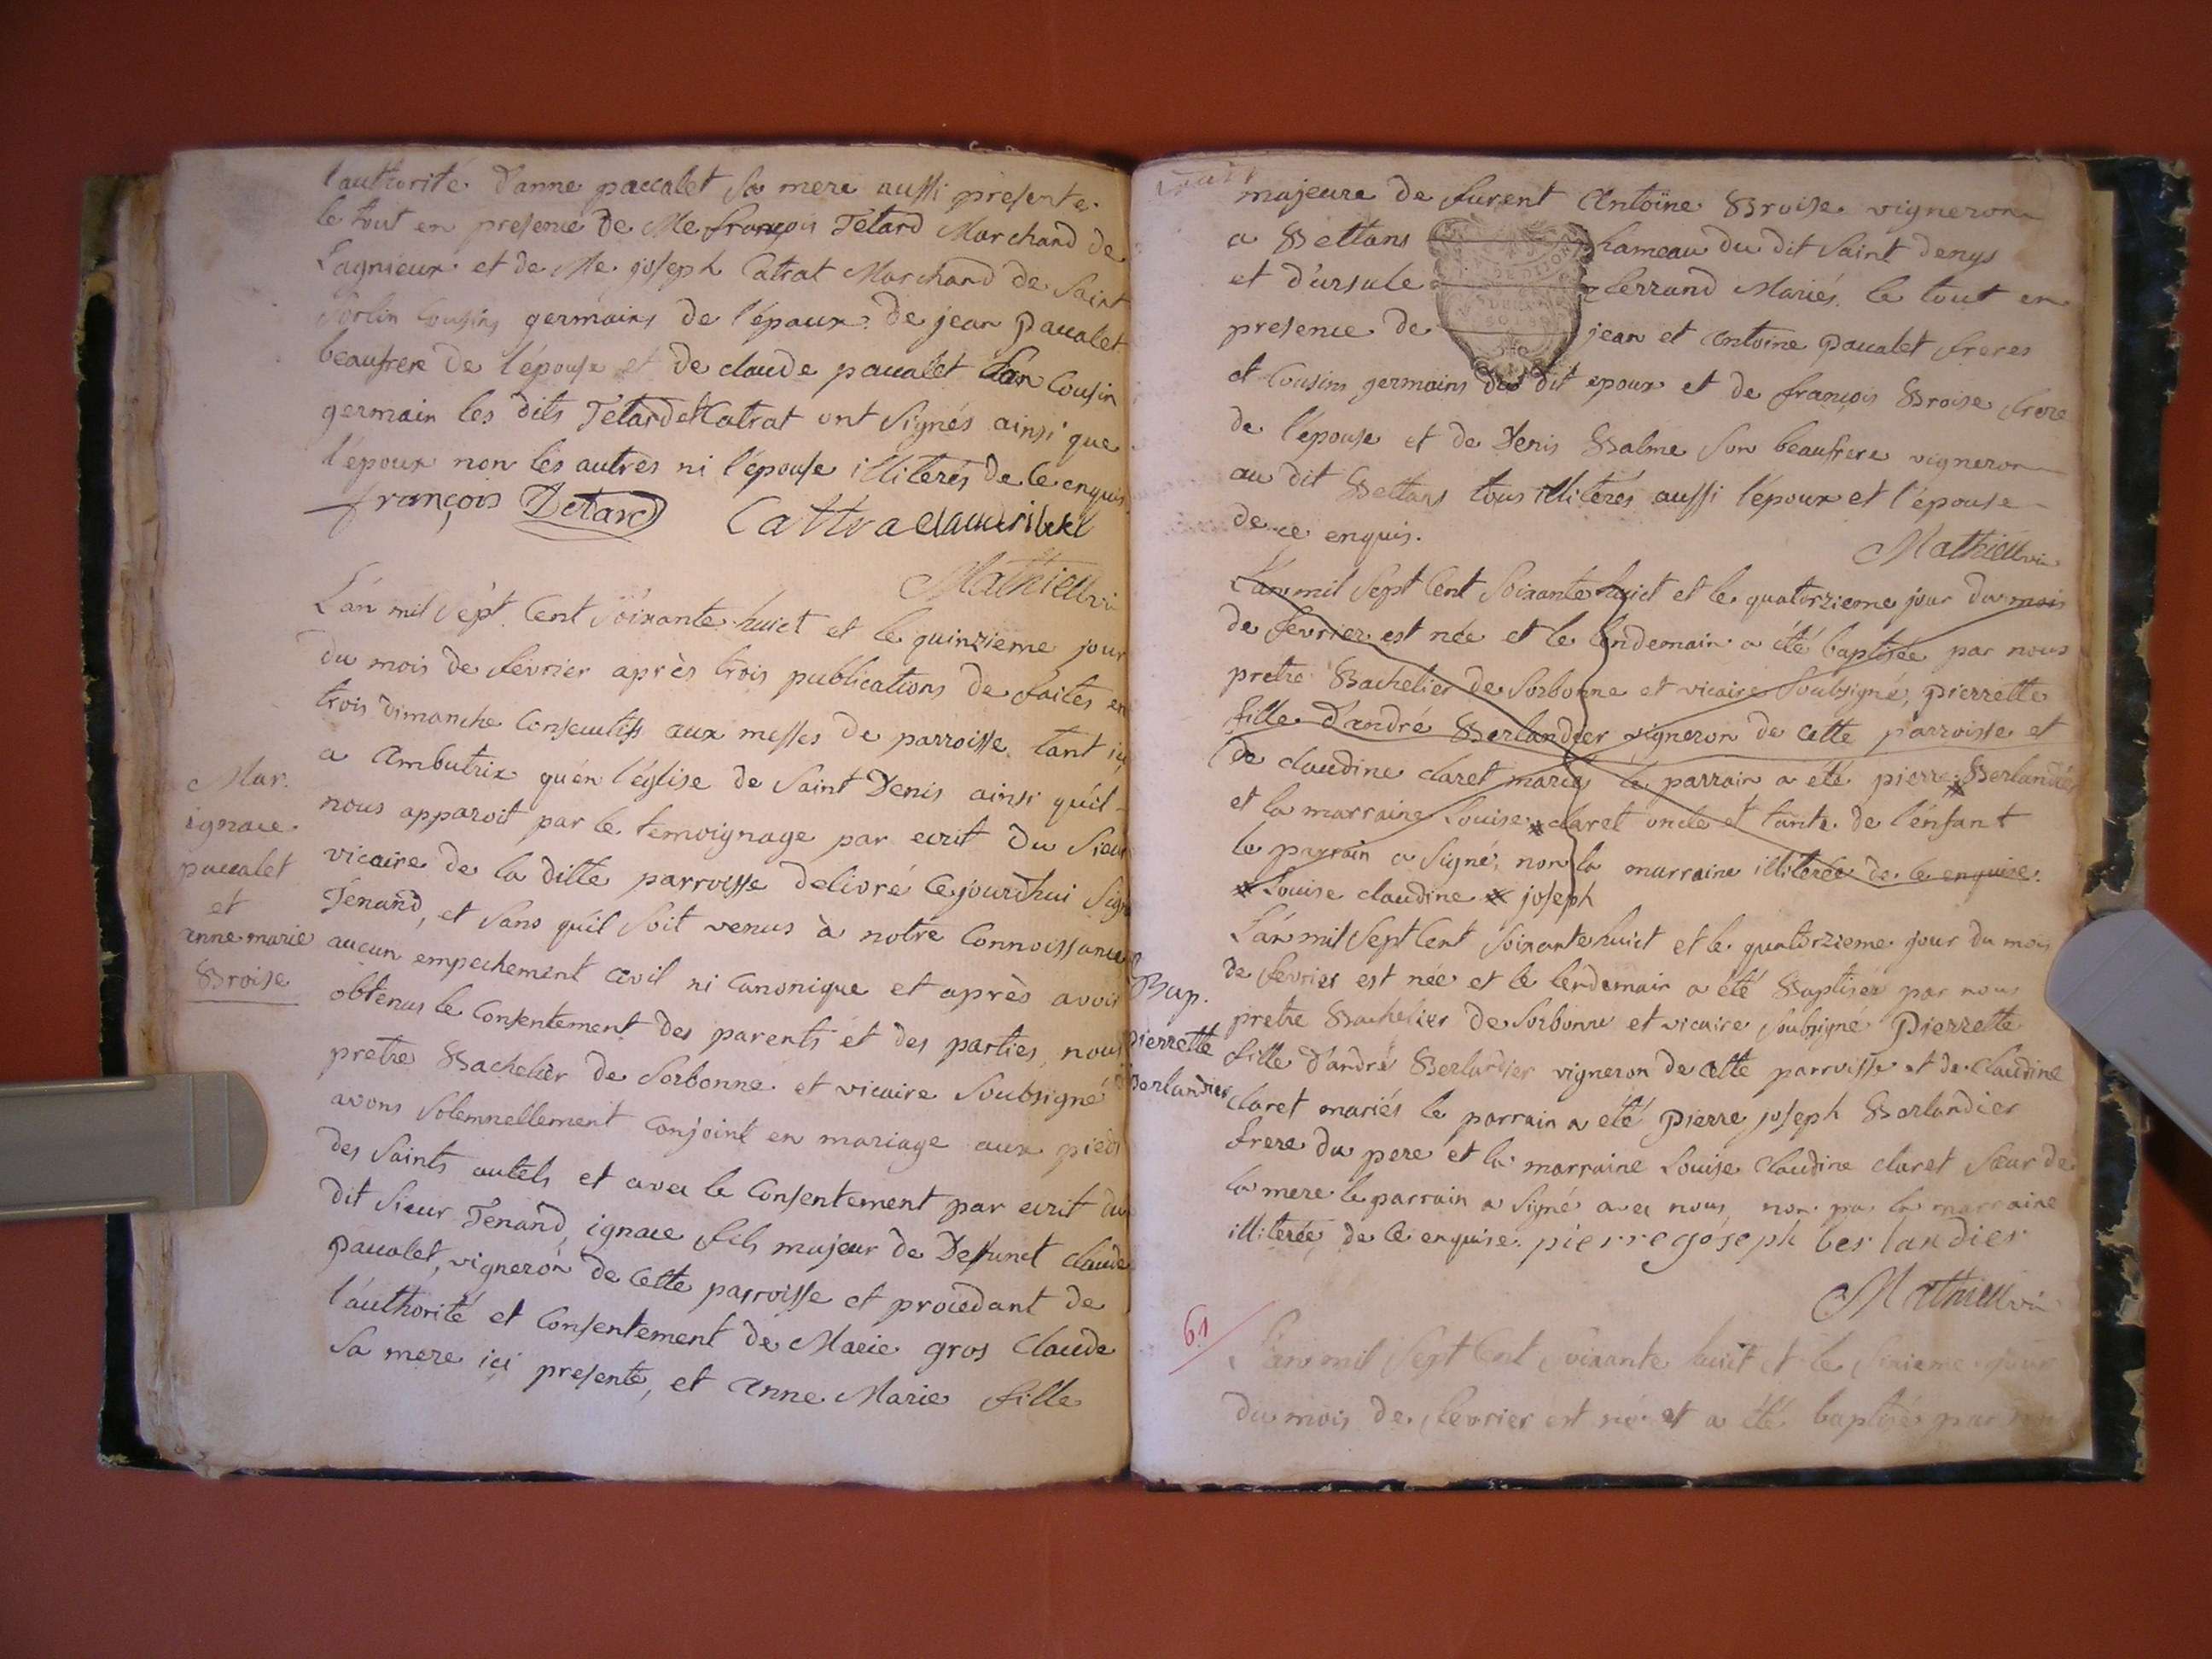 l'authorité d'anne paccalet sa mere aussi presente.
le tout en presence de Me françois Tetard Marchand de
Lagnieux et de Me joseph Catrat Marchand de Saint
Sorlin Cousins germains de l'époux. de jean Pacalet
beaufrere de l'épouse et de claude pacalet Son Cousin
germain les dits Tetard et Catrat ont Signés ainsi que
l'époux non les autres ni l'épouse illiterés de ce enquis
françois Detard Cattra
Mathieu vic
L'an mil Sept Cent Soixante huict et le quinzieme jour
du mois de fevrier après trois publications de faites en
trois dimanche Consecutifs aux messes de parroisse tant ici
a Ambutrix qu'en l'église de Saint Denis ainsi qu'il
nous apparoit par le temoignage par ecrit du Sieur
vicaire de la ditte parroisse delivré Cejourdhui Signé
Tenand, et Sans qu'il Soit venus à notre Connoissance
aucun empechement Civil ni Canonique et après avoir
obtenus le Consentement des parents et des parties, nous
pretre Bachelier de Sorbonne et vicaire Soubsigné
avons Solemnellement Conjoint en mariage aux pieds
des Saints autels et avec le Consentement par ecrit du
dit Sieur Tenand, ignace fils majeur de Defunct claude
pacalet, vigneron de Cette parroisse et procedant de
l'authorité et Consentement de Marie gros Claude
Sa mere ici presente, et Anne Marie fille
Mar.
ignace
paccalet
et
anne marie
Broise
majeure de furent Antoine Broise vigneron
a Bettans hameau du dit Saint denys
et d'ursule ferrand Mariés. le tout en
presence de jean et Antoine Pacalet freres
et Cousins germains du dit epoux et de françois Broise frere
de l'épouse et de Denis Balme Son beaufrere vigneron
au dit Bettans tous illiterés aussi l'époux et l'épouse
de ce enquis.
Mathieu vic
L'an mil Sept Cent Soixante huict et le quatorzieme jour du mois
de fevrier est née et le lendemain a été baptisée par nous
pretre Bachelier de Sorbonne et vicaire Soubsigné, pierrette
fille d'andré Berlandier vigneron de cette parroisse et
de claudine claret mariés le parrain a été pierre * Berlandier
et la marraine Louise * claret oncle et tante de l'enfant
le parrain a Signé, non la marraine illiterée de ce enquise.
* Louise claudine * joseph
L'an mil Sept Cent Soixante huict et le quatorzieme jour du mois
de fevrier est née et le lendemain a été Baptisée par nous
pretre Bachelier de Sorbonne et vicaire soubsigné Pierrette
fille d'andré Berlandier vigneron de cette parroisse et de Claudine
Claret mariés le parrain a été Pierre joseph Berlandier
frere du pere et la marraine Louise Claudine claret Sœur de
la mere le parrain a Signé avec nous, non pas la marraine
illiterée de ce enquise. pierre joseph berlandier
Mathieu vic
Bap.
pierrette
Berlandier
61
L'an mil Sept Cent Soixante huict et le Sixieme jour
du mois de fevrier est né et a été baptisé par nous